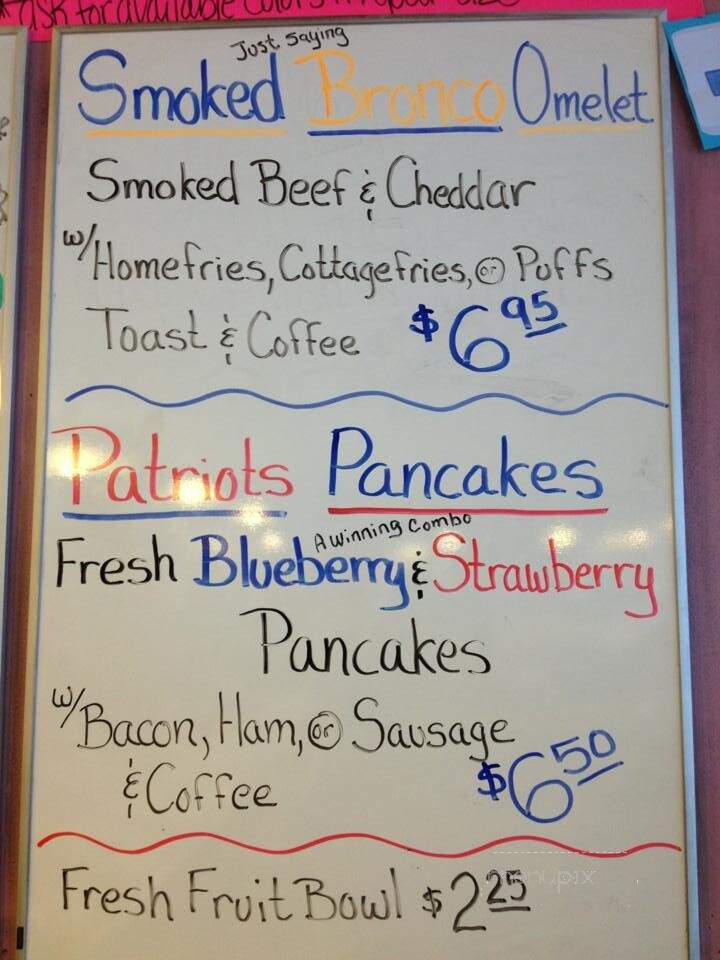 ask for available colors in your size
Just Saying
Smoked Bronco Omelet
Smoked Beef & Cheddar
w/Homefries, Cottagefries, or Puffs
Toast & Coffee $6.95
Patriots Pancakes
A Winning Combo
Fresh Blueberry & Strawberry
Pancakes
w/Bacon, Ham, or Sausage
& Coffee $6.50
menupix
Fresh Fruit Bowl $2.25